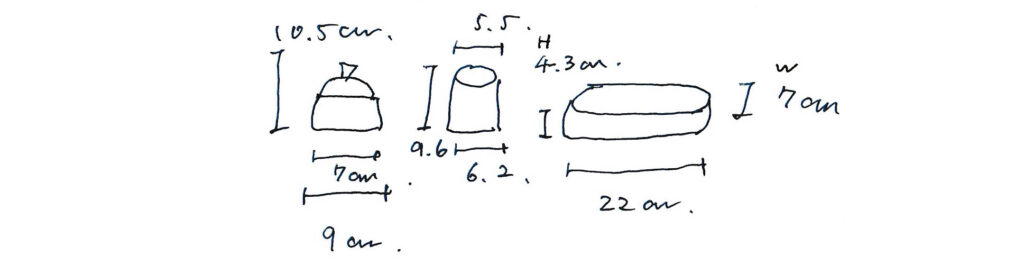 10.5cm.
7cm.
9cm.
5.5.
9.6
6.2.
H
4.3cm.
22cm.
W
7cm